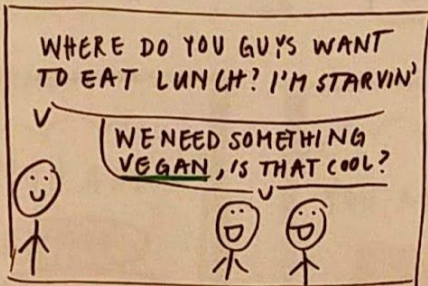 WHERE DO YOU GUYS WANT
TO EAT LUNCH? I'M STARVIN'
WE NEED SOMETHING
VEGAN, IS THAT COOL?